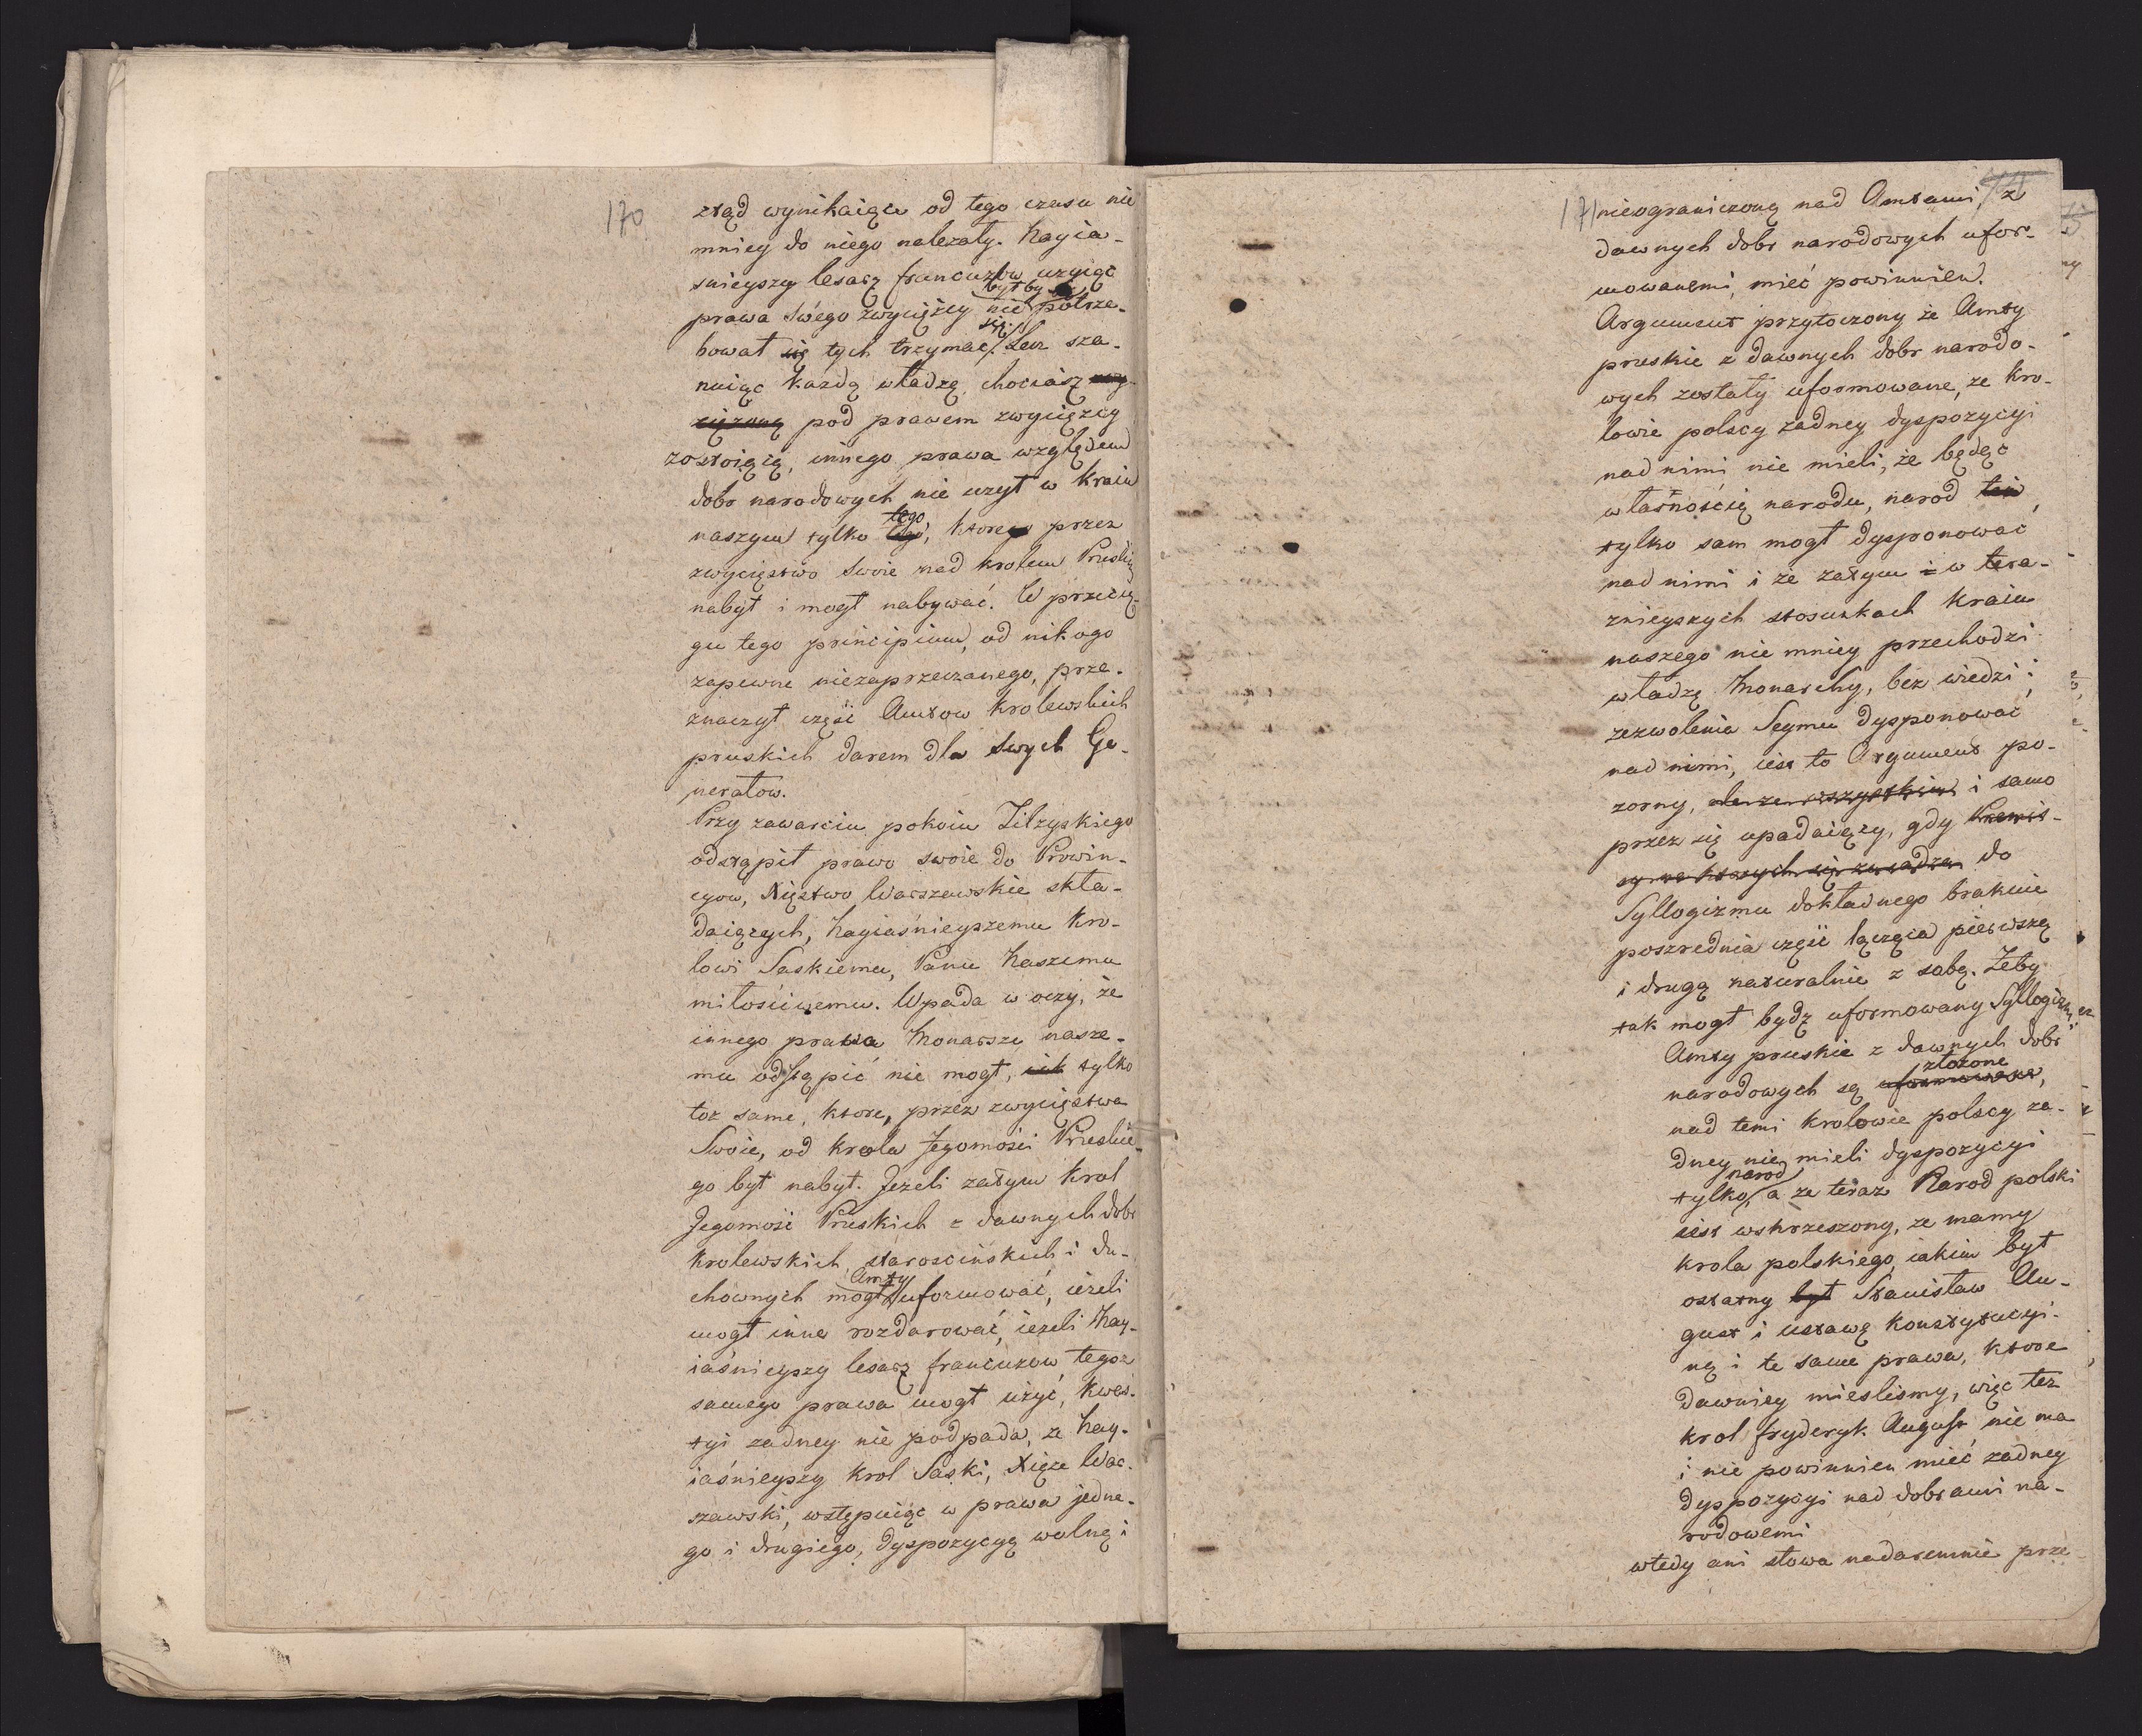 170
ztąd wynikaiące od tego czasu nie
mniey do niego należały. Nayia-
snieyszy Cesarz francuzow uzyiąc
byłby
prawa swego zwyciężcy nie potrze-
się
bował się tych trzymać. Lecz sza-
nuiąc każdą władzę, chociasz zwy-
ciężoną pod prawem zwyciężcy
zostoiącą, innego prawa względem
dobr narodowych nie uzył w kraiu
tego
naszym tylko tego, ktore przez
zwycięstwo swoie nad krolem Pruskim
nabył i mogł nabywać. W przecią-
gu tego principium, od nikogo
zapewne niezaprzeczanego, prze-
znaczył część Amtow krolewskich
pruskich darem dla swych Ge-
nerałow.
Przy zawarciu pokoiu Tilzyskiego
odstąpił prawo swoie do Prowin-
cyow, Xięstwo Warszawskie skła-
daiących, Nayiaśnieyszemu Kro-
lowi Saskiemu, Panu Naszemu
miłościwemu. Wpada w oczy, że
innego prawa Monarsze nasze-
mu odstąpić nie mogł, iak tylko
toz same, ktore, przez zwycięstwa
Swoie, od krola Jegomości Pruskie-
go był nabył. Jezeli zatym Krol
Jegomość Pruskich z dawnych dobr
krolewskich, starościńskich i du-
Amty
chownych mogł uformować, iezeli
mogł inne rozdarować, iezeli Nay-
iaśnieyszy Cesarz francuzow tegoz
samego prawa mogł użyć, kwes-
tyi zadney nie podpada, ze Nay-
iaśnieyszy Krol Saski, Xiąze War-
szawski, wstępuiąc w prawa jedne-
go i drugiego, dyspozycyą wolną i
171
nieograniczoną nad Amtami z
dawnych dobr narodowych ufor-
mowanemi, mieć powinnien.
Argument przytoczony że Amty
pruskie z dawnych dobr narodo-
wych zostały uformowane, ze kro-
lowie polscy zadney dyspozycyi
nad nimi nie mieli, że będąc
własnością narodu, narod ten
tylko sam mogł dysponować
nad nimi i że zatym i w tera-
znieyszych stosunkach kraiu
naszego nie mniey przechodzi
władzę Monarchy, bez wiedzi i
zezwolenia Seymu dysponować
nad nimi, iest to Argument po-
zorny, ale ze wszystkim i samo
przez się upadaiący, gdy Premis-
sy na ktorych się zasadza do
Syllogizmu dokładnego brakuie
poszrednia część łącząca pierwszą
i drugą naturalnie z sobą. Żeby
tak mogł bydz uformowany Syllogizm
Amty pruskie z dawnych dobr
złozone
narodowych są uformowane,
nad temi krolowie polscy za-
dney nie mieli dyspozycyi
narod
tylko, a ze teraz Narod polski
iest wskrzeszony, ze mamy
krola polskiego, iakim był
ostatny był Stanisław Au-
gust i ustawę konstytucyi-
ną i te same prawa, ktore
dawniey mieslismy, więc tez
krol fryderyk August nie ma
i nie powinnien mieć zadney
dyspozycyi nad dobrami na-
rodowemi
wtedy ani słowa nadaremnie prze